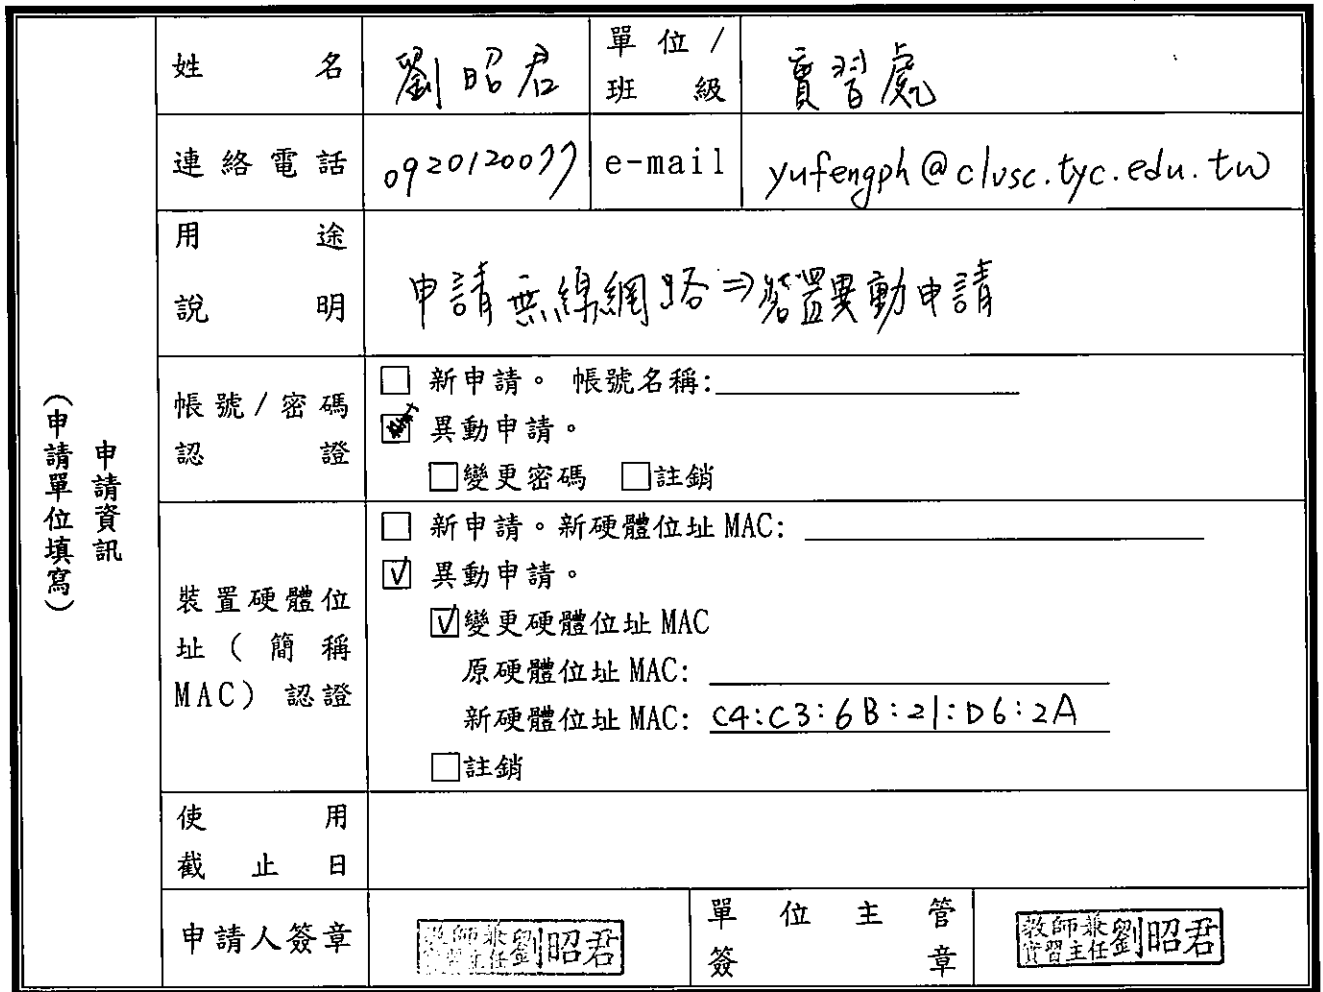 申請資訊
(申請單位填寫)
姓名 劉昭君 單位/班級 實習處
連絡電話 0920120077 e-mail yufengph@clvsc.tyc.edu.tw
用途說明 申請無線網路⇒裝置異動申請
帳號/密碼認證
□ 新申請。 帳號名稱:
異動申請。
□變更密碼 □註銷
裝置硬體位址(簡稱MAC)認證
□ 新申請。新硬體位址 MAC:
☑ 異動申請。
☑變更硬體位址 MAC
原硬體位址 MAC:
新硬體位址 MAC: C4:C3:6B:21:D6:2A
□註銷
使用截止日
申請人簽章 教師兼實習主任劉昭君 單位主管簽章 教師兼實習主任劉昭君